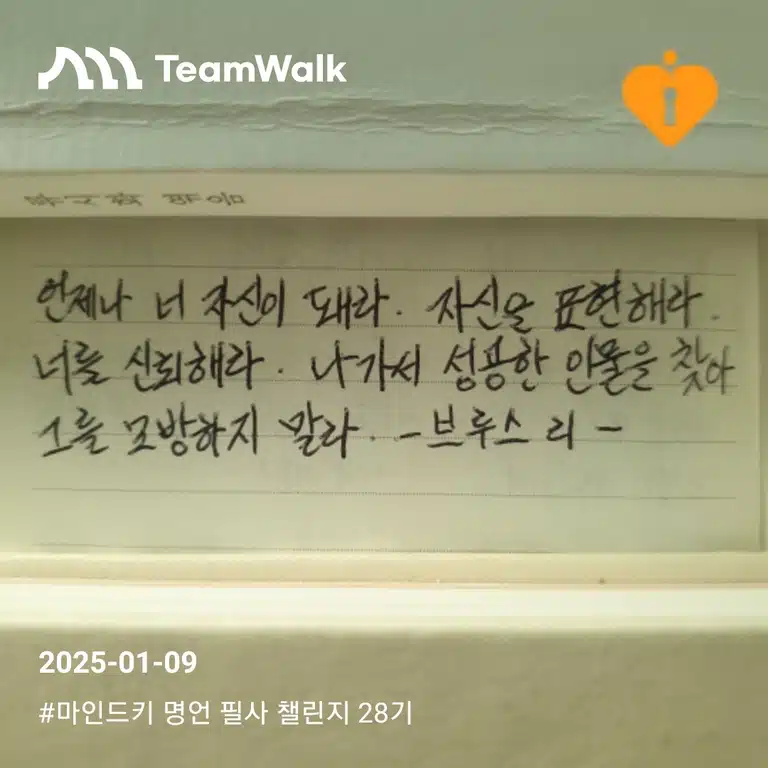 TeamWalk
언제나 너 자신이 돼라. 자신을 표현해라.
너를 신뢰해라. 나가서 성공한 인물을 찾아
그를 모방하지 말라. -브루스 리-
2025-01-09
#마인드키 명언 필사 챌린지 28기